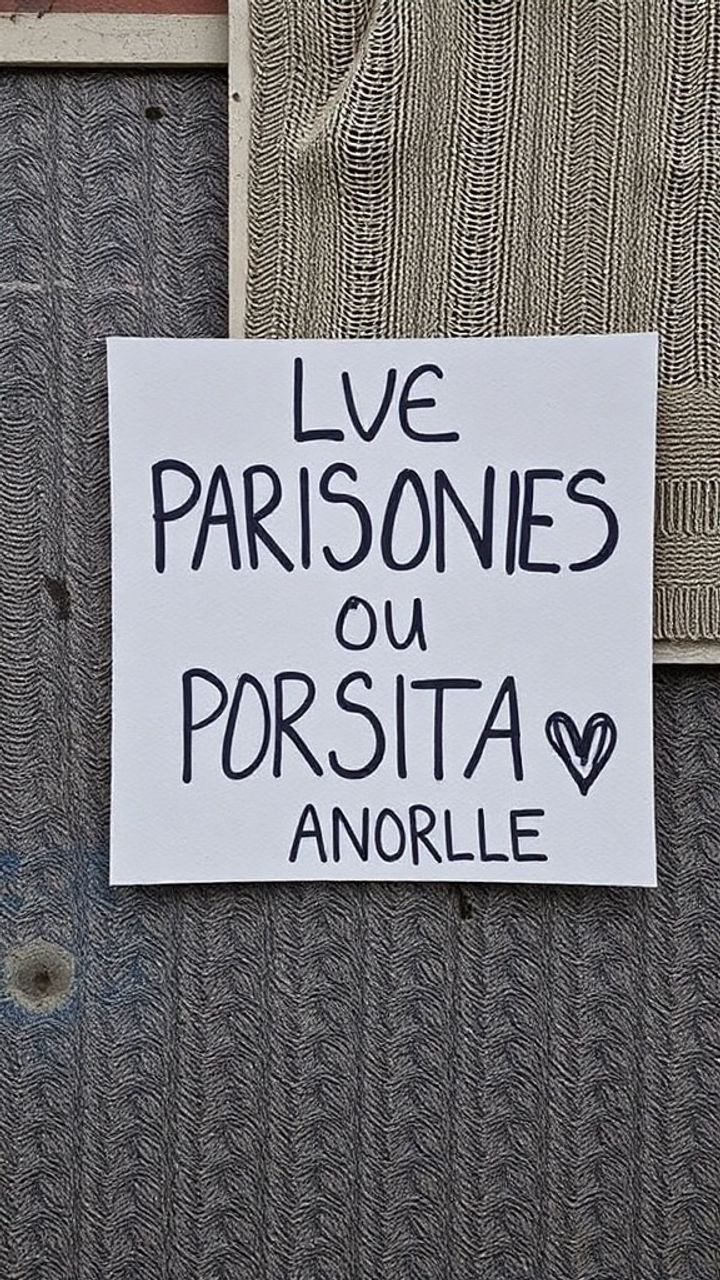 LVE
PARISONIES
OU
PORSITA
ANORLLE